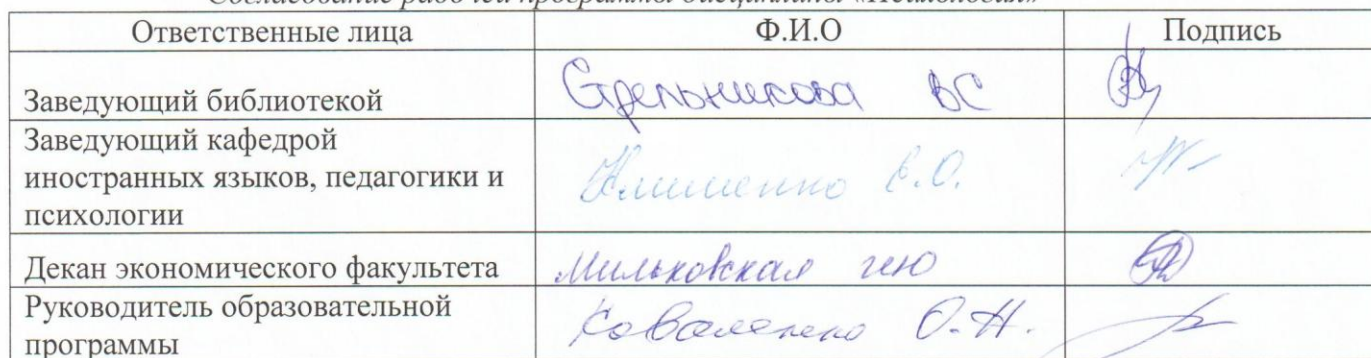 Согласование рабочей программы дисциплины
Ответственные лица Ф.И.О Подпись
Заведующий библиотекой Стрельникова ВС
Заведующий кафедрой
иностранных языков, педагогики и
психологии Клименко Е.О.
Декан экономического факультета Мильковская
Руководитель образовательной
программы Коваленко О.Н.